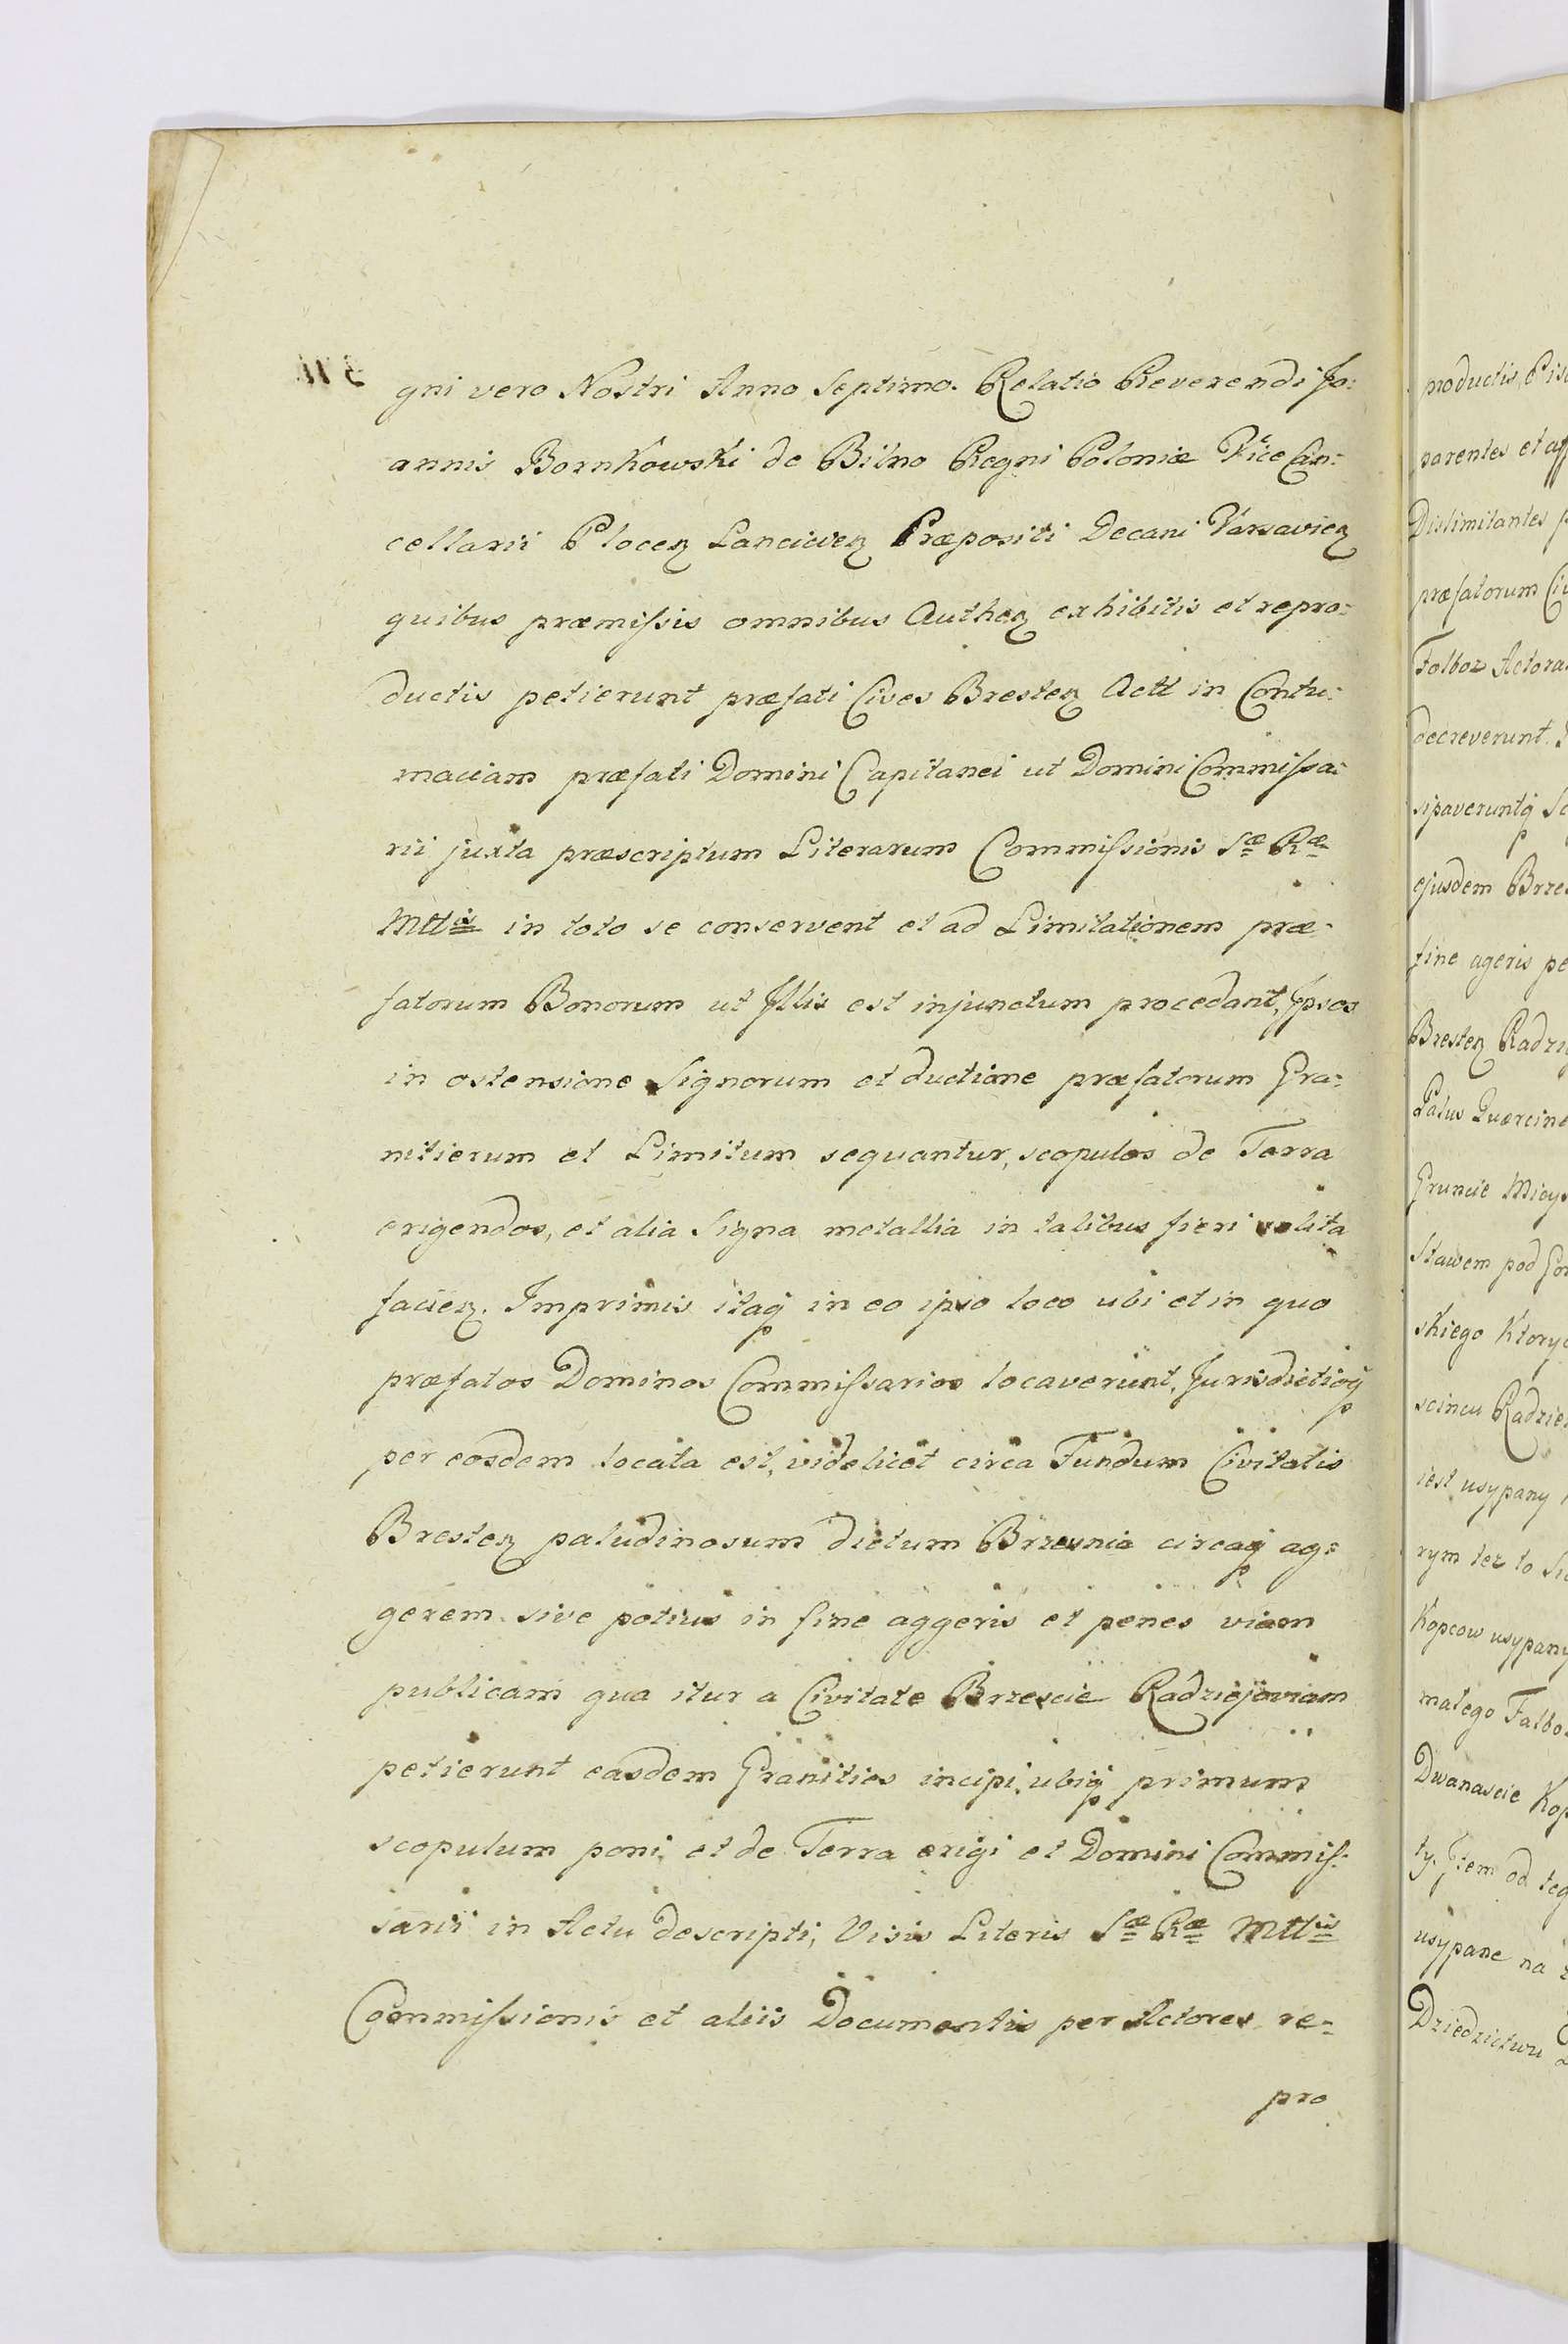 gni vero Nostri Anno Septimo. Relatio Reverendi Jo:
annis Bornkowski de Bilno Regni Poloniæ Vice Can:
cellarii Plocen Lancicien Præpositi Decani Varsavien
quibus præmissis omnibus Authen exhibitis et repro:
ductis petierunt præfati Cives Bresten Actt in Contu:
maciam præfati Domini Capitanei ut Domini Commissa:
rii juxta præscriptum Literarum Commissionis Sæ Ræ
Mttis in toto se conservent et ad Limitationem præ:
fatorum Bonorum ut Illis est injunctum procedant, Ipsos
in ostensione Signorum et ductione præfatorum Gra:
nitierum et Limitum sequantur, scopulos de Terra
erigendos, et alia Signa metallia in talibus fieri solita
facien. Imprimis itaq in eo ipso loco ubi et in quo
præfatos Dominos Commissarios locaverunt, Jurisdictioq
per eosdem locata est, videlicet circa Fundum Civitatis
Bresten paludinosum dictum Brzesnia circaq ag:
gerem sive potius in fine aggeris et penes viam
publicam qua itur a Civitate Brzescie Radziejoviam
petierunt easdem Granities incipi, ubiq primum
scopulum poni et de Terra erigi et Domini Commis:
sarii in Actu descripti, Visis Literis Sæ Ræ Mttis
Commissionis et aliis Documentis per Actores re:
pro
productis,
parentes et
Dislimitantes
præfatorum
Folborz
decreverunt.
sipaveruntq
ejusdem
fine ageris
Bresten
Palus
Gruncie
Stawem pod
skiego
scincu
iest usypany
rym tez to
Kopcow usypany
malego
Dwanascie
ty. Item od
usypane na
Dziedzictwu